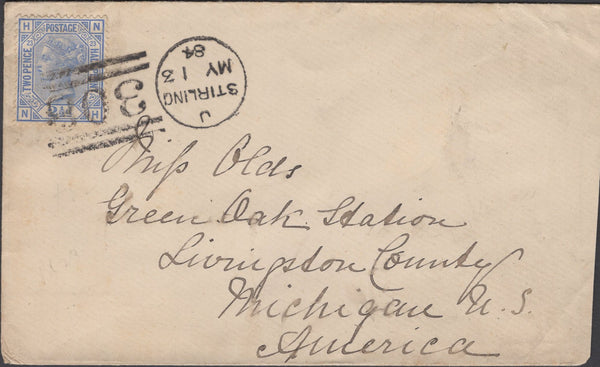 H POSTAGE N
TWO PENCE
HALF
N H
J
STIRLING
MY 13
84
Miss Olds
Green Oak Station
Livingston County
Michigan U.S.
America